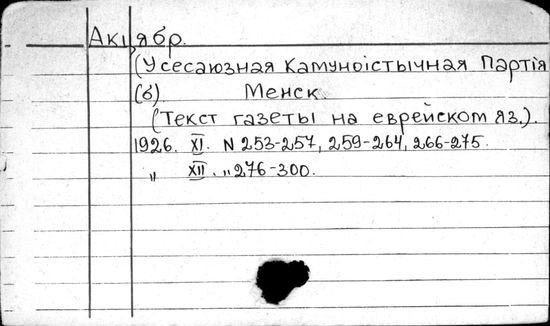 Акцябр.
(Усесаюзная Камуноістычная Партія
(б) Менск.
(Текст газеты на еврейском яз.).
1926. XI. N 253-257, 259-264, 266-275.
" XII. " 276-300.